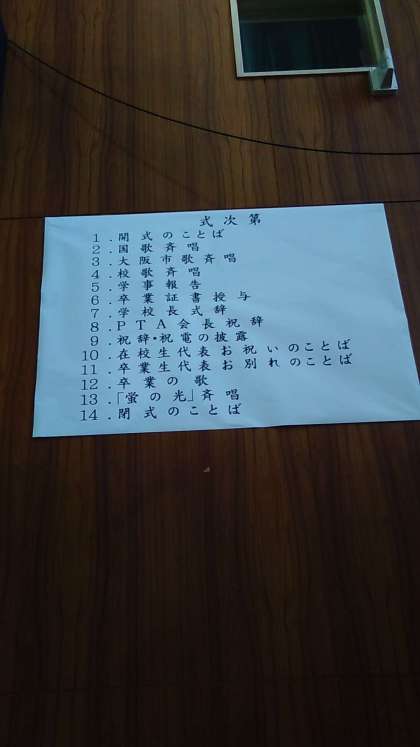 式次第
1．開式のことば
2．国歌斉唱
3．大阪市歌斉唱
4．校歌斉唱
5．学事報告
6．卒業証書授与
7．学校長式辞
8．PTA会長祝辞
9．祝辞・祝電の披露
10．在校生代表お祝いのことば
11．卒業生代表お別れのことば
12．卒業の歌
13．「蛍の光」斉唱
14．閉式のことば